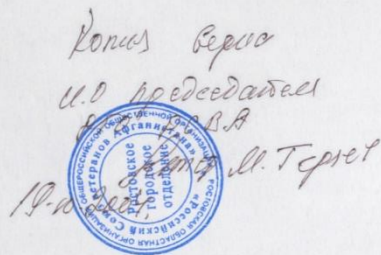 Копия верна
И.О председателя
РСВА
М.
19-10-2004.
РОСТОВСКАЯ ОБЛАСТНАЯ ОРГАНИЗАЦИЯ ОБЩЕРОССИЙСКОЙ ОБЩЕСТВЕННОЙ ОРГАНИЗАЦИИ
«Российский Союз ветеранов Афганистана»
Ростовское
городское
отделение